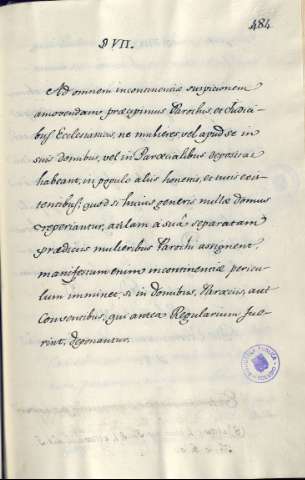 484
§ VII.
Ad omnem incontinentiæ suspicionem
amovendam præcipimus Parochis, et Judici-
bus Ecclesiasticis, ne mulieres, vel apud se in
suis domibus, vel in Paræcialibus depositas
habeant, in populo aliis honestis, et tutis exis-
tentibus; quod si huius generis nullæ domus
reperiantur, aulam a suâ separatam
prædictis mulieribus Parochi assignent,
manifestum enim incontinentiæ pericu-
lum imminet, si in domibus, Paræciis, aut
Conventibus, qui antea Regularium fue-
rint, deponantur.